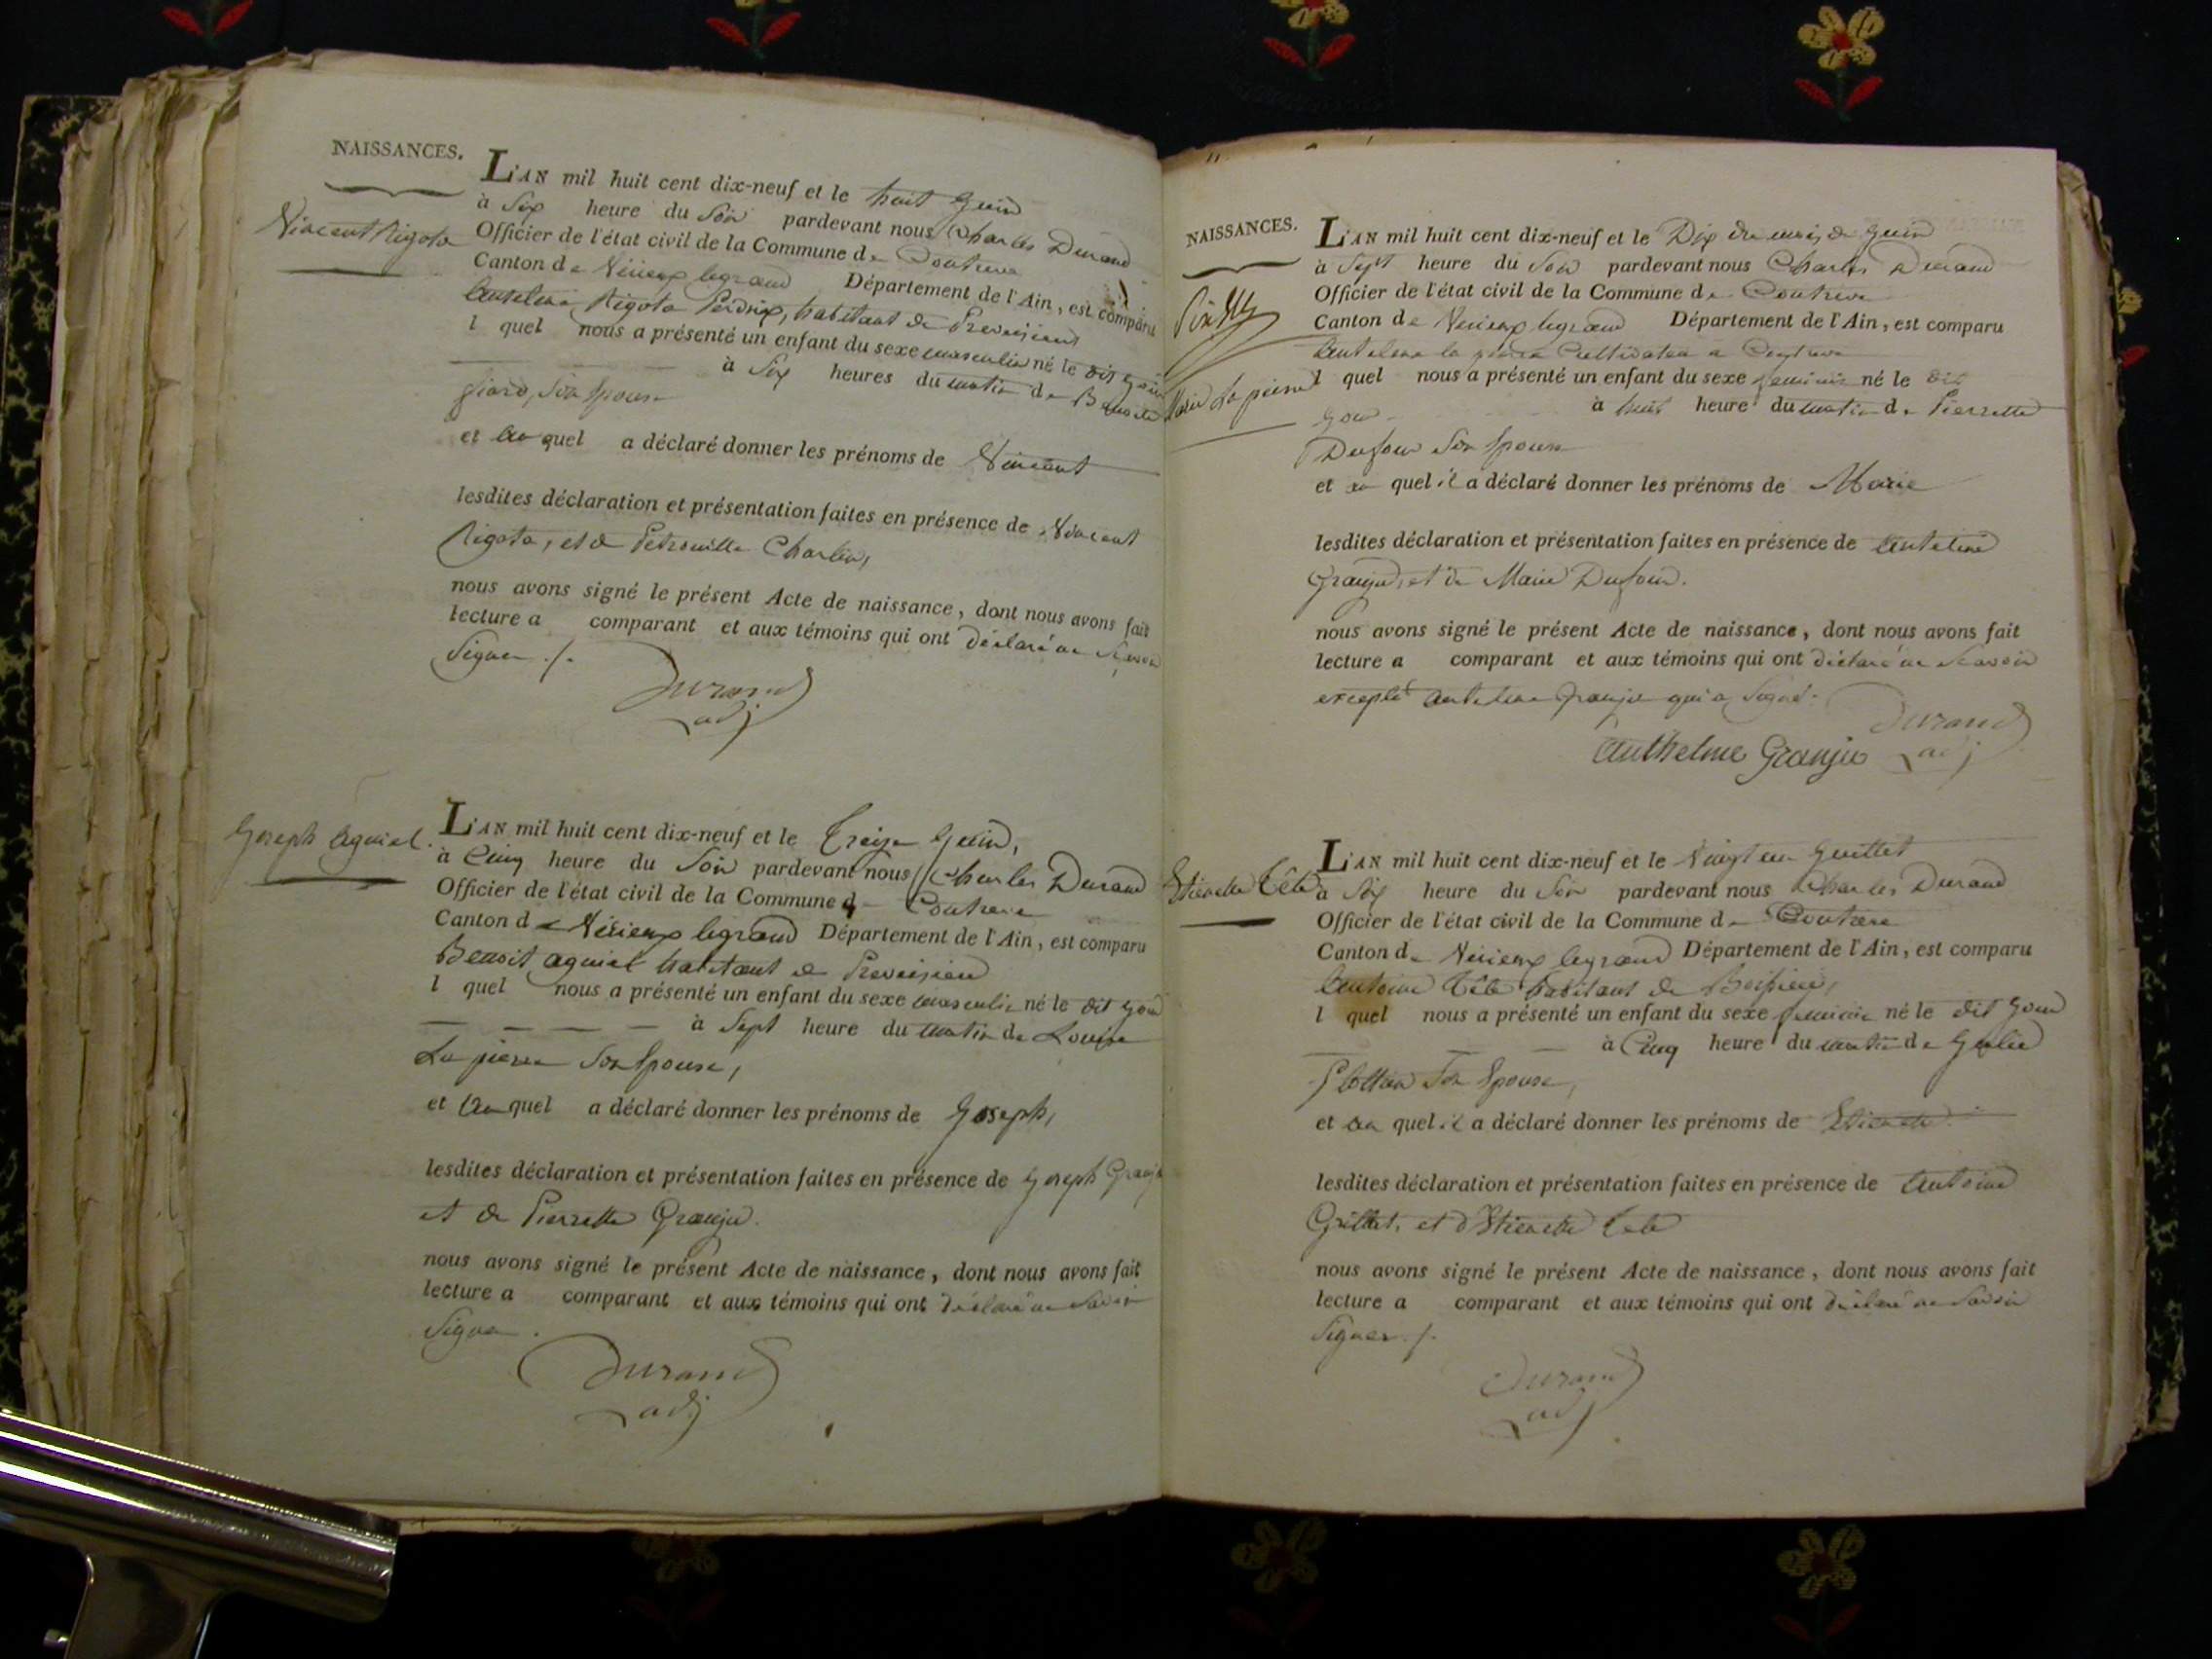 NAISSANCES.
Vincent Rigota
L'AN mil huit cent dix-neuf et le huit Guin
à Six heure du Soir pardevant nous Charles Durand
Officier de l'état civil de la Commune de Contreve
Canton de Virieux legrand Département de l'Ain, est comparu
Antelme Rigota Perdrix, habitant de Preveisieux
l quel nous a présenté un enfant du sexe masculin né le dit Gour
à Six heures du matin de Benoite
son Epouse
et au quel a déclaré donner les prénoms de Vincent
lesdites déclaration et présentation faites en présence de Vincent
Rigota, et de Petronille Charlin,
nous avons signé le présent Acte de naissance, dont nous avons fait
lecture a comparant et aux témoins qui ont déclaré ne Scavoir
Signer ./.
Durand
adj
Goseph Aguiel.
L'AN mil huit cent dix-neuf et le Treize Guin,
à Cinq heure du Soir pardevant nous Charles Durand
Officier de l'état civil de la Commune de Contreve
Canton de Virieux legrand Département de l'Ain, est comparu
Benoit aguiel habitant de Preveisieu
l quel nous a présenté un enfant du sexe masculin né le dit Gour
à Sept heure du matin de Louise
La pierre Son Epouse,
et au quel a déclaré donner les prénoms de Goseph,
lesdites déclaration et présentation faites en présence de Goseph
et de Pierrette Granju.
nous avons signé le présent Acte de naissance, dont nous avons fait
lecture a comparant et aux témoins qui ont déclaré ne Savoir
Signer.
Durand
adj
NAISSANCES.
Marie La pierre
L'AN mil huit cent dix-neuf et le Dix du mois de Guin
à Sept heure du Soir pardevant nous Charles Durand
Officier de l'état civil de la Commune de Contreve
Canton de Virieux legrand Département de l'Ain, est comparu
Antelme la pierre Cultivateur a Contreve
l quel nous a présenté un enfant du sexe feminin né le dit
Gour à huit heure du matin de Pierrette
Dufour Son Epouse
et au quel il a déclaré donner les prénoms de Marie
lesdites déclaration et présentation faites en présence de Antelme
Granju, et de Marie Dufour.
nous avons signé le présent Acte de naissance, dont nous avons fait
lecture a comparant et aux témoins qui ont déclaré ne Scavoir
excepté Antelme Granju qui a Signé.
Durand
Anthelme Granju adj
Etienette Tête
L'AN mil huit cent dix-neuf et le Vingt un Guillet
à Six heure du Soir pardevant nous Charles Durand
Officier de l'état civil de la Commune de Contreve
Canton de Virieux legrand Département de l'Ain, est comparu
Antoine Tête habitant de
l quel nous a présenté un enfant du sexe feminin né le dit Gour
à Cinq heure du matin de Gulie
Son Epouse,
et au quel il a déclaré donner les prénoms de Etienette
lesdites déclaration et présentation faites en présence de Antoine
Grillet, et d'Etienette Tete
nous avons signé le présent Acte de naissance, dont nous avons fait
lecture a comparant et aux témoins qui ont déclaré ne Savoir
Signer ./.
Durand
adj